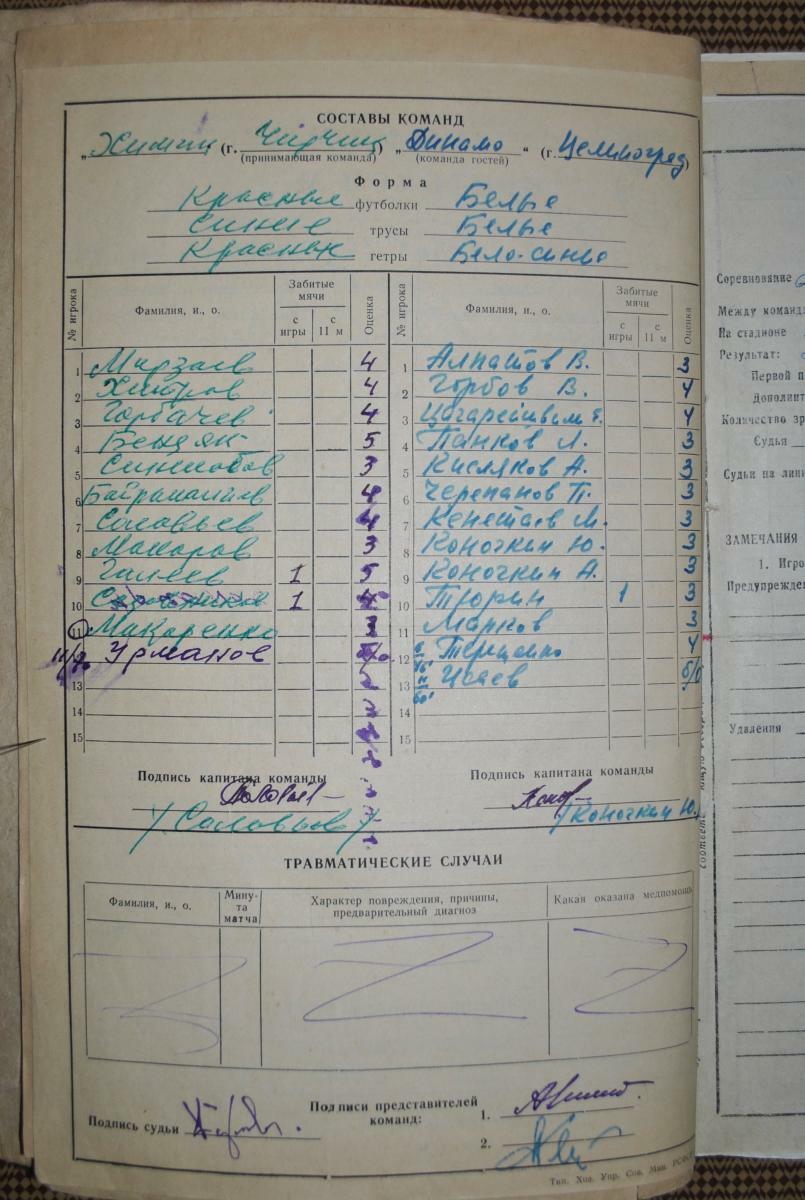 СОСТАВЫ КОМАНД
„Химик (г. Чирчик) „Динамо“ (г. Целиноград)
(принимающая команда) (команда гостей)
Форма
Красные футболки Белые
Синие трусы Белые
Красные гетры Бело-синие
№ игрока Фамилия, и., о. Забитые мячи с игры с 11 м Оценка № игрока Фамилия, и., о. Забитые мячи с игры с 11 м Оценка
1 Мирзаев 4 1 Алпатов В. 3
2 Хитров 4 2 Горбов В. 4
3 Горбачев 4 3 4
4 5 4 Панков Л. 3
5 3 5 Кисляков А. 3
6 4 6 Черепанов П. 3
7 Соловьев 4 7 М. 3
8 Макаров 3 8 Коночкин Ю. 3
9 Галеев 1 5 9 Коночкин А. 3
10 1 4 10 1 3
11 Макаренко 3 11 Марков 3
Урманов 12 4
13 Исаев б/о
14 14
15 15
Подпись капитана команды Подпись капитана команды
/Соловьев/ /Коночкин Ю./
ТРАВМАТИЧЕСКИЕ СЛУЧАИ
Фамилия, и., о. Мину-та матча Характер повреждения, причины, предварительный диагноз Какая оказана медпомощь
Подпись судьи Подписи представителей команд: 1.
2.
Тип. Хоз. Упр. Сов. Мин.
Соревнование
Между команд
На стадионе
Результат:
Первой п
Дополнит
Количество зр
Судья
Судьи на лини
ЗАМЕЧАНИЯ
1. Игро
Предупрежде
Удаления